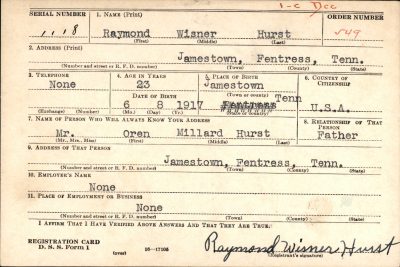 1-C Dec
SERIAL NUMBER 1. NAME (Print) ORDER NUMBER
1118 Raymond Wisner Hurst 549
(First) (Middle) (Last)
2. ADDRESS (Print)
Jamestown, Fentress, Tenn.
(Number and street or R. F. D. number) (Town) (County) (State)
3. TELEPHONE 4. AGE IN YEARS 5. PLACE OF BIRTH 6. COUNTRY OF CITIZENSHIP
None 23 Jamestown
DATE OF BIRTH (Town or county) Tenn
6 8 1917 Fentress U.S.A.
(Exchange) (Number) (Mo.) (Day) (Yr.) (State or country)
7. NAME OF PERSON WHO WILL ALWAYS KNOW YOUR ADDRESS 8. RELATIONSHIP OF THAT PERSON
Mr. Oren Millard Hurst Father
(Mr., Mrs., Miss) (First) (Middle) (Last)
9. ADDRESS OF THAT PERSON
Jamestown, Fentress, Tenn.
(Number and street or R. F. D. number) (Town) (County) (State)
10. EMPLOYER'S NAME
None
11. PLACE OF EMPLOYMENT OR BUSINESS
None
(Number and street or R. F. D. number) (Town) (County) (State)
I AFFIRM THAT I HAVE VERIFIED ABOVE ANSWERS AND THAT THEY ARE TRUE.
REGISTRATION CARD
D. S. S. Form 1 (over) 16—17105 Raymond Wisner Hurst
(Registrant's signature)